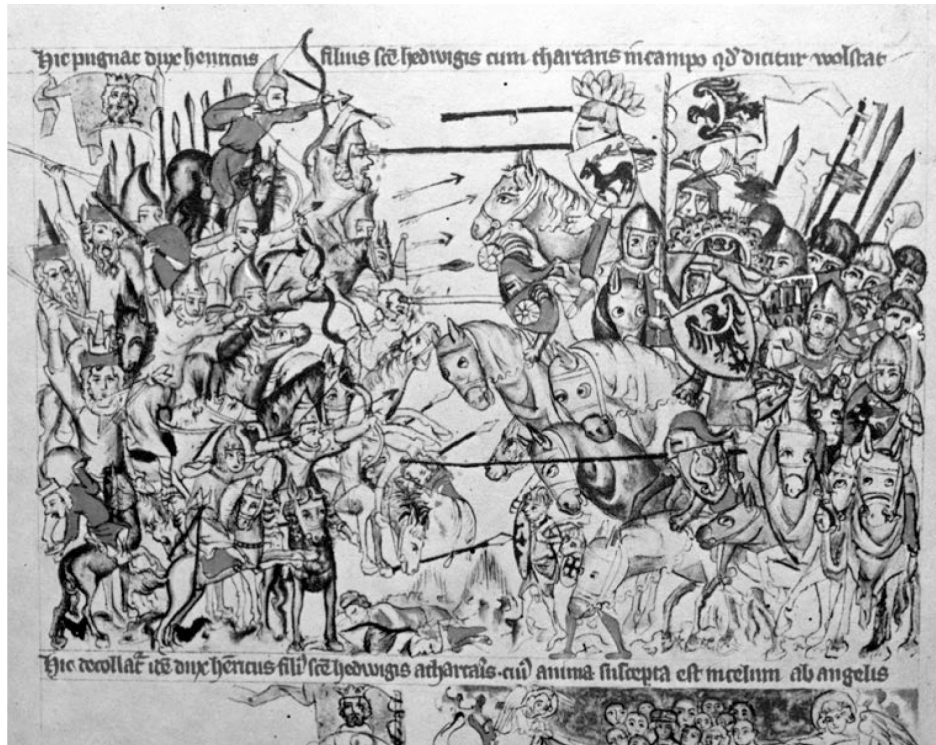 Hic pugnat dux henricus filius scē hedwigis cum thartaris in campo qd dicitur wolstat
Hic decollat' idē dux hēricus fili' scē hedwigis a thartaris. cui' anima suscepta est in celum ab angelis